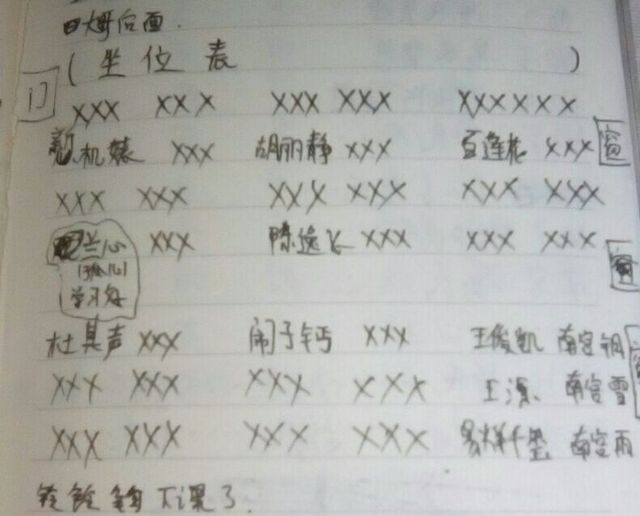 大哥后面.
(坐位表)
门
XXX XXX XXX XXX XXXXXX
机婊 XXX 胡丽静 XXX 百莲花 XXX 窗
XXX XXX XXX XXX XXX XXX
兰心 XXX 陈逸飞 XXX XXX XXX
(孤儿)
学习好
窗
杜其声 XXX 闹子钙 XXX 王俊凯 南宫钢
XXX XXX XXX XXX 王源 南宫雪
XXX XXX XXX XXX 易烊千玺 南宫雨
下课了.